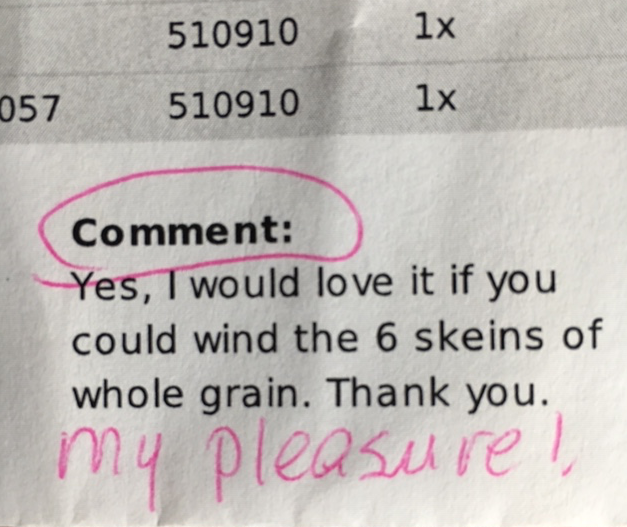 510910 1x
057 510910 1x
Comment:
Yes, I would love it if you
could wind the 6 skeins of
whole grain. Thank you.
my pleasure!